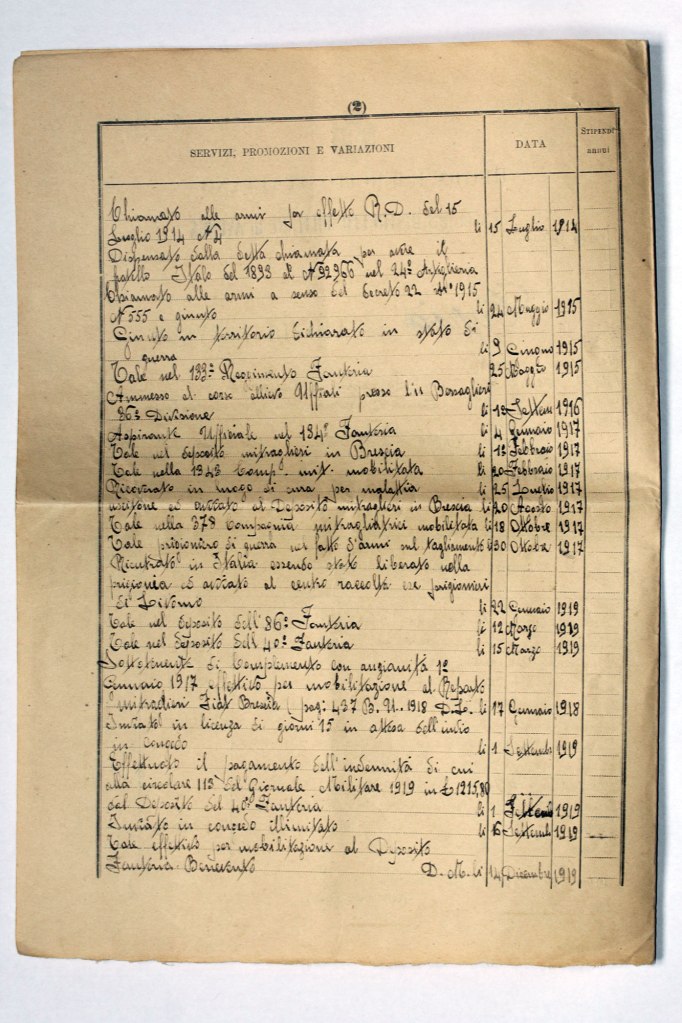 (2)
SERVIZI, PROMOZIONI E VARIAZIONI DATA STIPENDI annui
Chiamato alle armi per effetto R.D. del 15
Luglio 1914 N°4 li 15 Luglio 1914
Dispensato dalla detta chiamata per avere il
fratello Italo del 1893 al N°32966 nel 24° Artiglieria
Chiamato alle armi a senso del decreto 22 1915
N° 555 e giunto li 24 Maggio 1915
Giunto in territorio dichiarato in stato di
guerra li 9 Giugno 1915
Tale nel 133° Reggimento Fanteria 25 Maggio 1915
Ammesso al corso allievi Ufficiali presso l'11 Bersaglieri
36ª Divisione li 18 Settem 1916
Aspirante Ufficiale nel 134° Fanteria li 4 Gennaio 1917
Tale nel deposito mitraglieri in Brescia li 13 Febbraio 1917
Tale nella 1343 Comp. mit. mobilitata li 20 Febbraio 1917
Ricoverato in luogo di cura per malattia li 25 Luglio 1917
uscitone ed avviato al Deposito mitraglieri in Brescia li 20 Agosto 1917
Tale nella 378 Compagnia mitragliatrici mobilitata li 18 Ottobre 1917
Tale prigioniero di guerra nel fatto d'armi sul tagliamento li 30 Ottobr 1917
Rientrato in Italia essendo stato liberato nella
prigionia ed avviato al centro raccolta ex prigionieri
di Livorno li 22 Gennaio 1919
Tale nel deposito dell'86° Fanteria li 12 Marzo 1919
Tale nel deposito dell 40° Fanteria li 15 Marzo 1919
Sottotenente di Complemento con anzianità 1°
Gennaio 1917 effettivo per mobilitazione al Reparto
mitraglieri Fiat Brescia (pag: 437 B. U. 1918 D.L. li 17 Gennaio 1918
Inviato in licenza di giorni 15 in attesa dell'invio
in congedo li 1 Settembr 1919
Effettuato il pagamento dell'indennità di cui
alla circolare 113 del Giornale Militare 1919 in £ 1215,80
dal Deposito del 40° Fanteria li 1 1919
Inviato in congedo illimitato li 16 Settemb 1919
Tale effettivo per mobilitazioni al Deposito
Fanteria Benevento D. M. li 14 Dicembre 1919